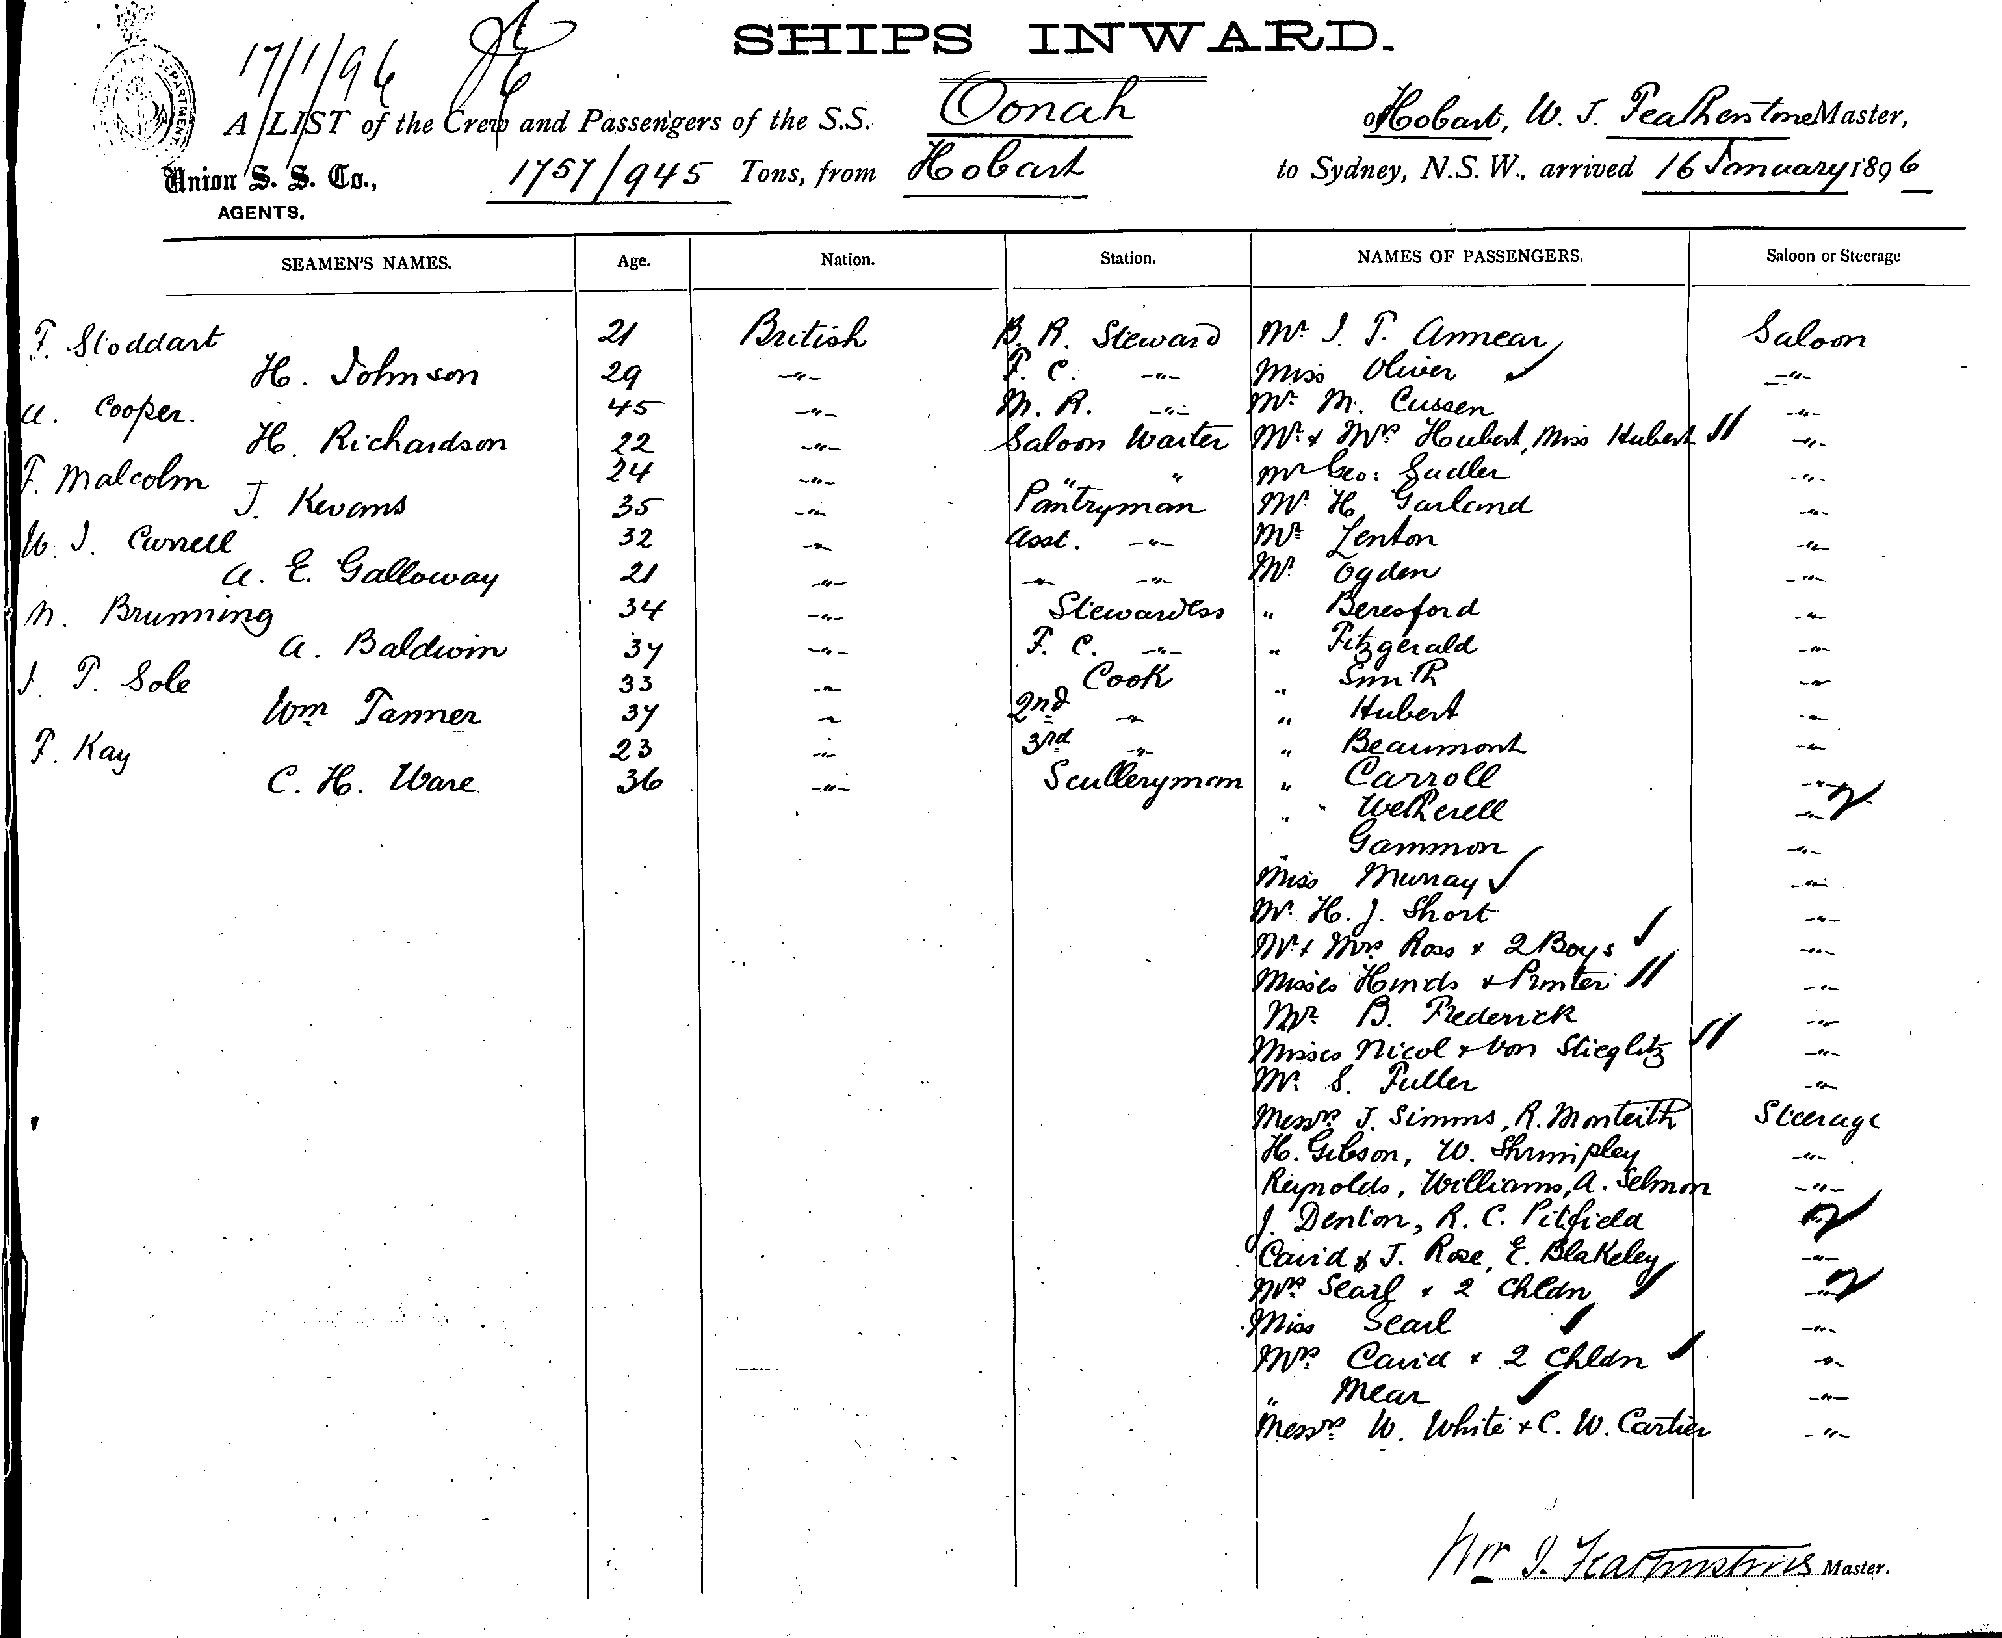 SHIPS INWARD.
17/1/96
A LIST of the Crew and Passengers of the S.S. Oonah of Hobart, W. J. Featherstone Master,
Union S. S. Co., 1757/945 Tons, from Hobart to Sydney, N.S.W., arrived 16 January 1896
AGENTS.
SEAMEN'S NAMES. Age. Nation. Station. NAMES OF PASSENGERS. Saloon or Steerage
F. Stoddart 21 British B. R. Steward Mr. J. T. Annear Saloon
H. Johnson 29 -"- F. C. -"- Miss Oliver -"-
A. Cooper. 45 -"- M. R. -"- Mr. M. Cussen -"-
H. Richardson 22 -"- Saloon Waiter Mr. & Mrs Hubert, Miss Hubert -"-
F. Malcolm 24 -"- " " Mr Geo: Sadler -"-
J. Kevans 35 -"- Pantryman Mr. H. Garland -"-
W. J. Currell 32 -"- Asst. -"- Mr. Lenton -"-
A. E. Galloway 21 -"- -"- -"- Mr. Ogden -"-
M. Brunning 34 -"- Stewardess " Beresford -"-
A. Baldwin 37 -"- F. C. -"- " Fitzgerald -"-
J. T. Sole 33 -"- Cook " Smith -"-
Wm Tanner 37 -"- 2nd -"- " Hubert -"-
F. Kay 23 -"- 3rd -"- " Beaumont -"-
C. H. Ware 36 -"- Sculleryman " Carroll -"-
" Wetherell -"-
" Gammon -"-
Miss Murray -"-
Mr. H. J. Short -"-
Mr & Mrs Ross & 2 Boys -"-
Misses Hinds & Printer -"-
Mr. B. Frederick -"-
Misses Nicol & Von Stieglitz -"-
Mr. S. Fuller -"-
Messrs J. Simms, R. Monteith Steerage
H. Gibson, W. Shrimpley -"-
Reynolds, Williams, A. Selmon -"-
J. Denton, R. C. Pitfield -"-
Cavid & J. Rose, E. Blakeley -"-
Mrs Searl & 2 Chldn -"-
Miss Searl -"-
Mrs Cavid & 2 Chldn -"-
" Mear -"-
Messrs W. White & C. W. Cartier -"-
Wm J. Featherstone Master.